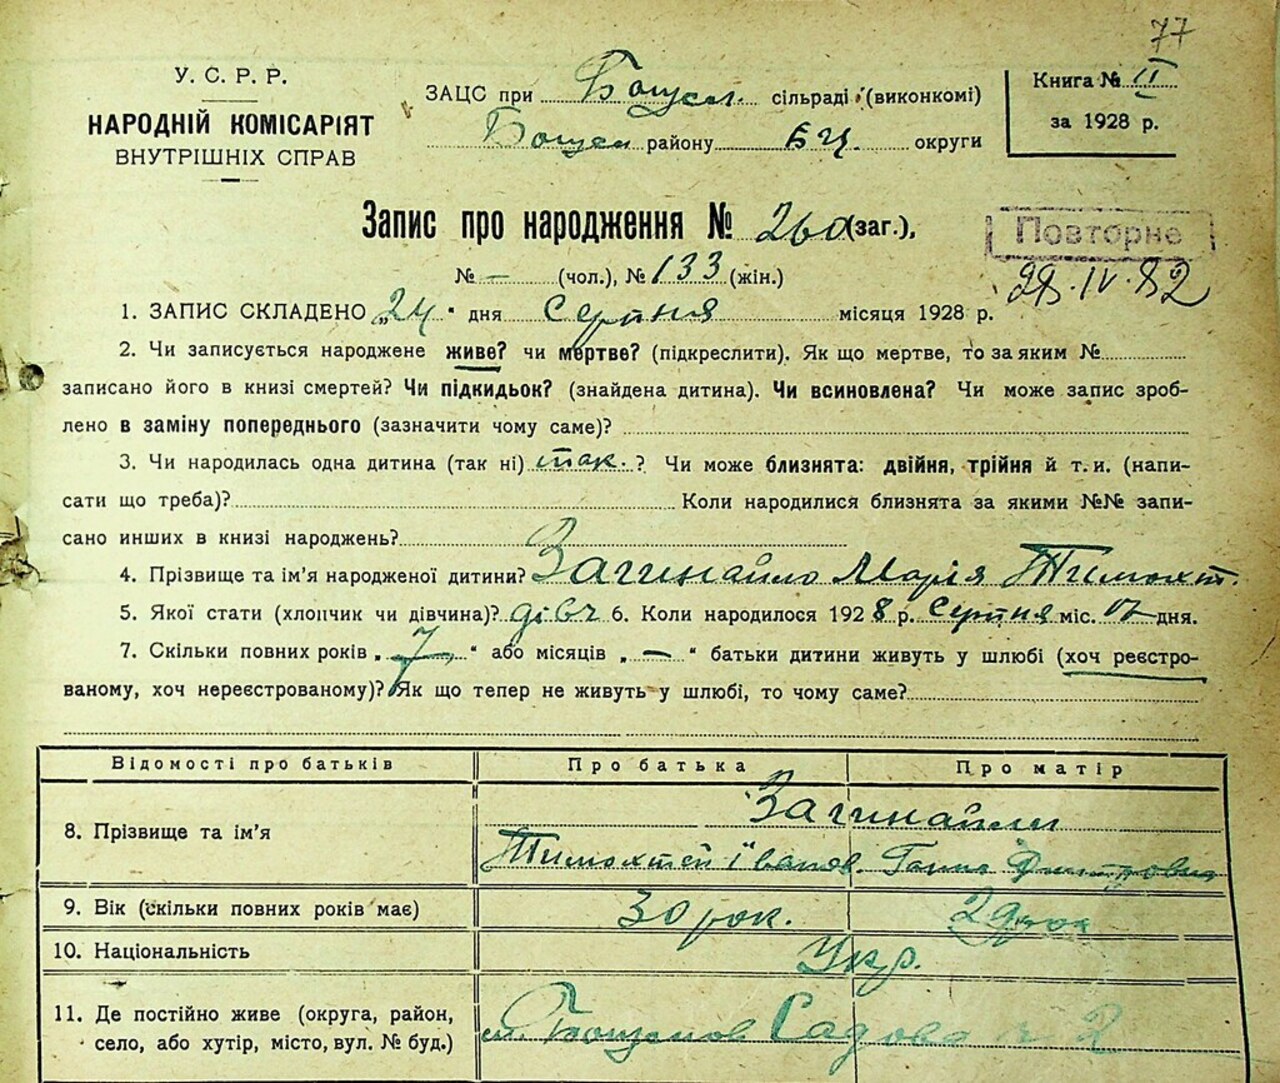 77
У. С. Р. Р.
НАРОДНІЙ КОМІСАРІЯТ
ВНУТРІШНІХ СПРАВ
ЗАЦС при Богусл. сільраді (виконкомі)
Богусл району БЦ. округи
Книга № II
за 1928 р.
Запис про народження № 260 (заг.),
№ – (чол.), № 133 (жін.)
Повторне
29.IV.82
1. ЗАПИС СКЛАДЕНО „24" дня серпня місяця 1928 р.
2. Чи записується народжене живе? чи мертве? (підкреслити). Як що мертве, то за яким №
записано його в книзі смертей? Чи підкидьок? (знайдена дитина). Чи всиновлена? Чи може запис зроб-
лено в заміну попереднього (зазначити чому саме)?
3. Чи народилась одна дитина (так ні) так. ? Чи може близнята: двійня, трійня й т. и. (напи-
сати що треба)? Коли народилися близнята за якими №№ запи-
сано инших в книзі народжень?
4. Прізвище та ім'я народженої дитини? Загинайло Марія Тимохт.
5. Якої стати (хлопчик чи дівчина)? дівч 6. Коли народилося 1928 р. серпня міс. 17 дня.
7. Скільки повних років „7" або місяців „–" батьки дитини живуть у шлюбі (хоч реєстро-
ваному, хоч нереєстрованому)? Як що тепер не живуть у шлюбі, то чому саме?
Відомості про батьків Про батька Про матір
8. Прізвище та ім'я Загинайли
Тимохтей Іванов. Ганна Дмитровна
9. Вік (скільки повних років має) 30 рок. 29 рок
10. Національність Укр.
11. Де постійно живе (округа, район,
село, або хутір, місто, вул. № буд.)
м. Садова 2